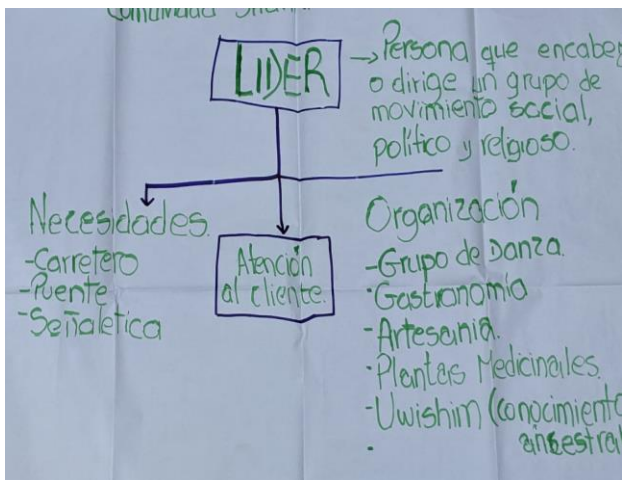 Comunidad
LIDER
→Persona que encabe
o dirige un grupo de
movimiento social,
político y religioso.
Necesidades.
-Carretero
-Puente
-Señaletica
Atención
al cliente.
Organización
-Grupo de Danza.
·Gastronomía
-Artesania.
·Plantas Medicinales.
-Uwishim (conocimiento
ancestral